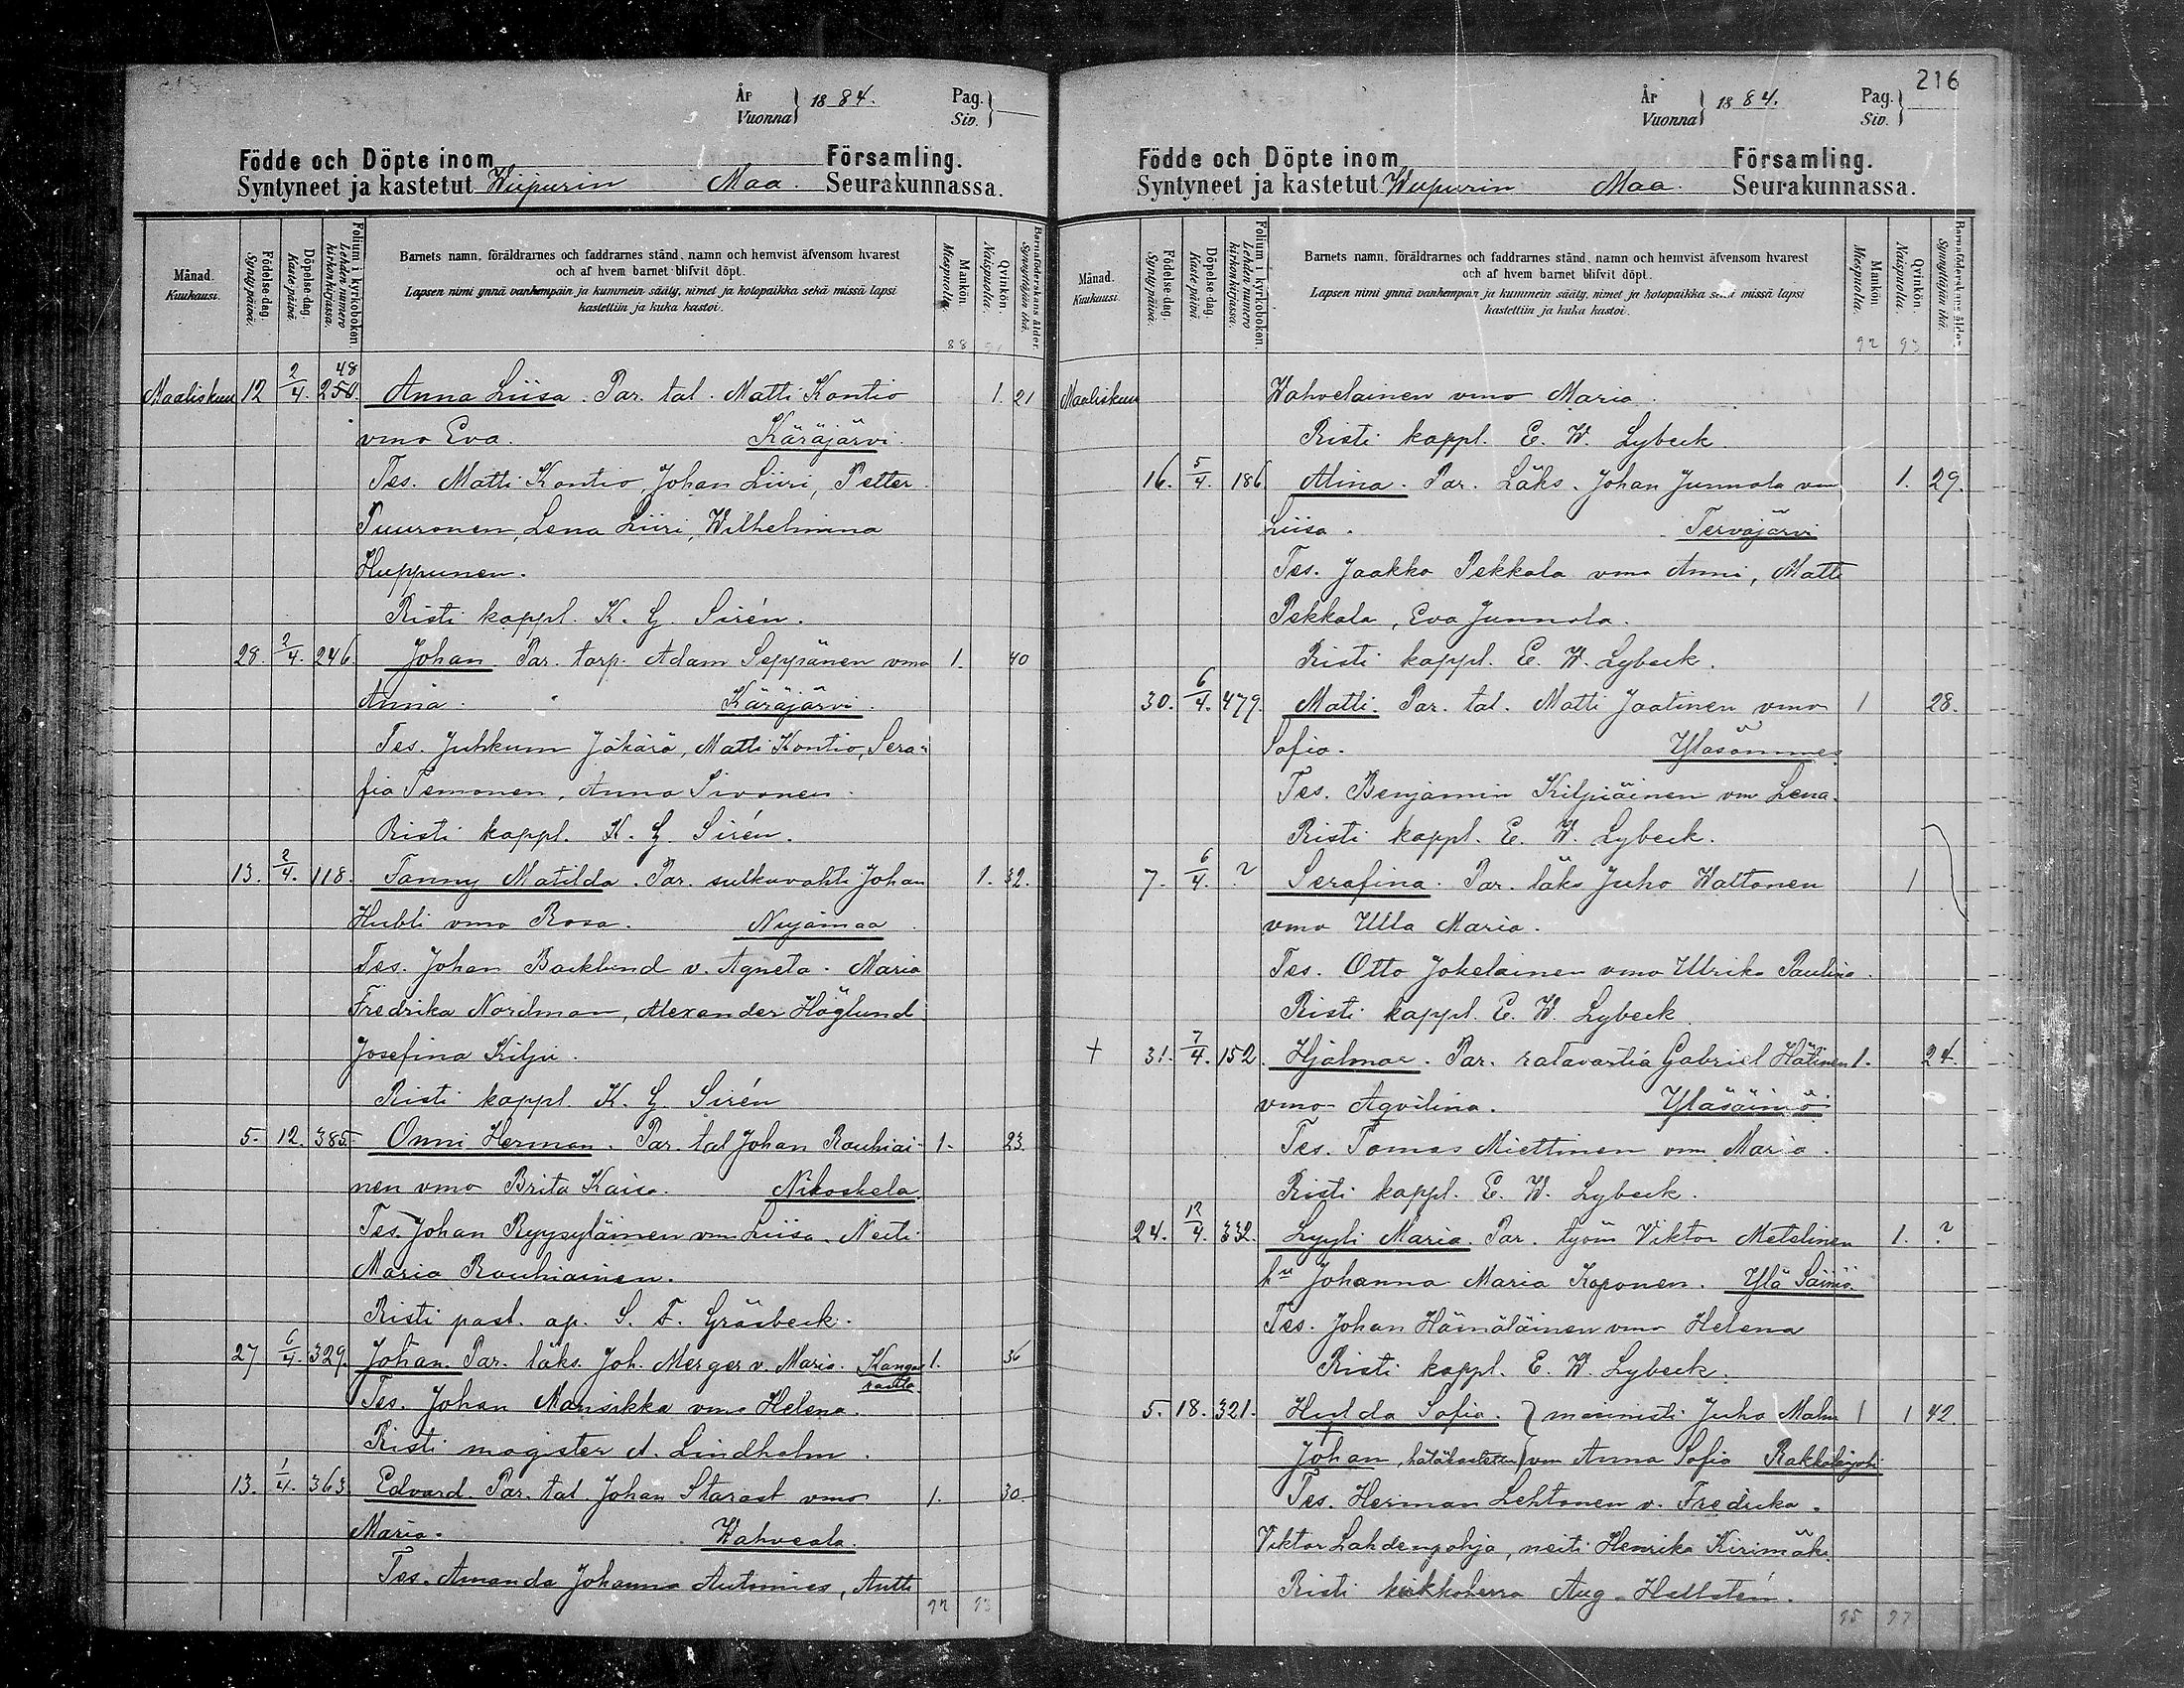 År
Vuonna } 1884. Pag.
Siv. }
Födde och Döpte inom Församling.
Syntyneet ja kastetut Wiipurin Maa. Seurakunnassa.
Månad. Kuukausi.
Födelse-dag. Syntypäivä.
Döpelse-dag. Kastepäivä.
Folium i kyrkoboken. Lehden numero kirkonkirjassa.
Barnets namn, föräldrarnes och faddrarnes stånd, namn och hemvist äfvensom hvarest
och af hvem barnet blifvit döpt.
Lapsen nimi ynnä vanhempain ja kummein sääty, nimet ja kotopaikka sekä missä lapsi
kastettiin ja kuka kastoi.
Mankön. Miespuolia.
Qvinkön. Naispuolia.
Barnaföderskans ålder. Synnyttäjän ikä.
88
48
Maaliskuu 12 2/4. 250. Anna Liisa. Par. tal. Matti Kontio 1. 21
vmo Eva. Käräjärvi.
Tes. Matti Kontio, Johan Liiri, Petter
Puuronen, Lena Liiri, Wilhelmina
Huppunen.
Risti kappl. K. G. Sirén.
28. 2/4. 246. Johan Par. torp. Adam Seppänen vmo 1. 40
Anna. Käräjärvi.
Tes. Juhkum Jäkärä, Matti Kontio, Sera-
fia Temonen, Anna Sivonen.
Risti kappl. K. G. Sirén.
13. 2/4. 118. Fanny Matilda. Par. sulkuvahti Johan 1. 32.
Hubli vmo Rosa. Nuijamaa
Tes. Johan Backlund v. Agneta. Maria
Fredrika Nordman, Alexander Höglund
Josefina Kilpi.
Risti kappl. K. G. Sirén
5. 12. 385. Onni Herman. Par. tal Johan Rouhiai- 1. 23.
nen vmo Brita Kaisa. Nikoskela.
Tes. Johan Ryysyläinen vmo Liisa. Neiti
Maria Rouhiainen.
Risti past. ap. S. F. Gräsbeck.
27 6/4. 329. Johan. Par. läks. Joh. Merger v. Maria. Kangas 1. 36
rantta
Tes. Johan Mansikka vmo Helena.
Risti magister A. Lindholm.
13. 1/4. 363 Edvard. Par. tal. Johan Starast vmo 1. 30.
Maria. Wahveala.
Tes. Amanda Johanna Antonies, Antti
92 93
216
År
Vuonna } 1884. Pag.
Siv. }
Födde och Döpte inom Församling.
Syntyneet ja kastetut Wiipurin Maa. Seurakunnassa.
Månad. Kuukausi.
Födelse-dag. Syntypäivä.
Döpelse-dag. Kastepäivä.
Folium i kyrkoboken. Lehden numero kirkonkirjassa.
Barnets namn, föräldrarnes och faddrarnes stånd, namn och hemvist äfvensom hvarest
och af hvem barnet blifvit döpt.
Lapsen nimi ynnä vanhempain ja kummein sääty, nimet ja kotopaikka sekä missä lapsi
kastettiin ja kuka kastoi.
Mankön. Miespuolia.
Qvinkön. Naispuolia.
Barnaföderskans ålder. Synnyttäjän ikä.
92 93
Maaliskuu Wahvelainen vmo Maria.
Risti kappl. E. W. Lybeck.
16. 5/4. 186. Alina. Par. Läks. Johan Junnola vm 1. 29.
Liisa. Tervajärvi
Tes. Jaakko Pekkala vmo Anni, Matti
Pekkala, Eva Junnola.
Risti kappl. E. W. Lybeck.
30. 6/4. 479. Matti. Par. tal. Matti Jaatinen vmo 1 28.
Sofia. Yläsommee
Tes. Benjamin Kilpiäinen vmo Lena.
Risti kappl. E. W. Lybeck.
7. 6/4. ? Serafina. Par. läks Juho Waltonen 1
vmo Ulla Maria.
Tes. Otto Jokelainen vmo Ulrika Paulina.
Risti kappl. E. W. Lybeck
+ 31. 7/4. 152. Hjalmar. Par. ratavartia Gabriel Hätinen 1. 24.
vmo Aqvilina. Yläsäiniö
Tes. Tomas Miettinen vmo Maria.
Risti kappl. E. W. Lybeck.
24. 12/4. 332. Lyyli Maria. Par. työm Viktor Metelinen 1. ?
hu Johanna Maria Koponen. Ylä Säiniö.
Tes. Johan Hämäläinen vmo Helena
Risti kappl. E. W. Lybeck.
5. 18. 321. Hulda Sofia. } masinisti Juho Malm 1 1 42
+
Johan, hätäkastettu } vm Anna Sofia Rakkolanjoki
Tes. Herman Lehtonen v. Fredrika.
Viktor Lahdenpohja, neiti Henrika Kirimäki.
Risti kirkkoherra Aug. Hellstén.
95 97